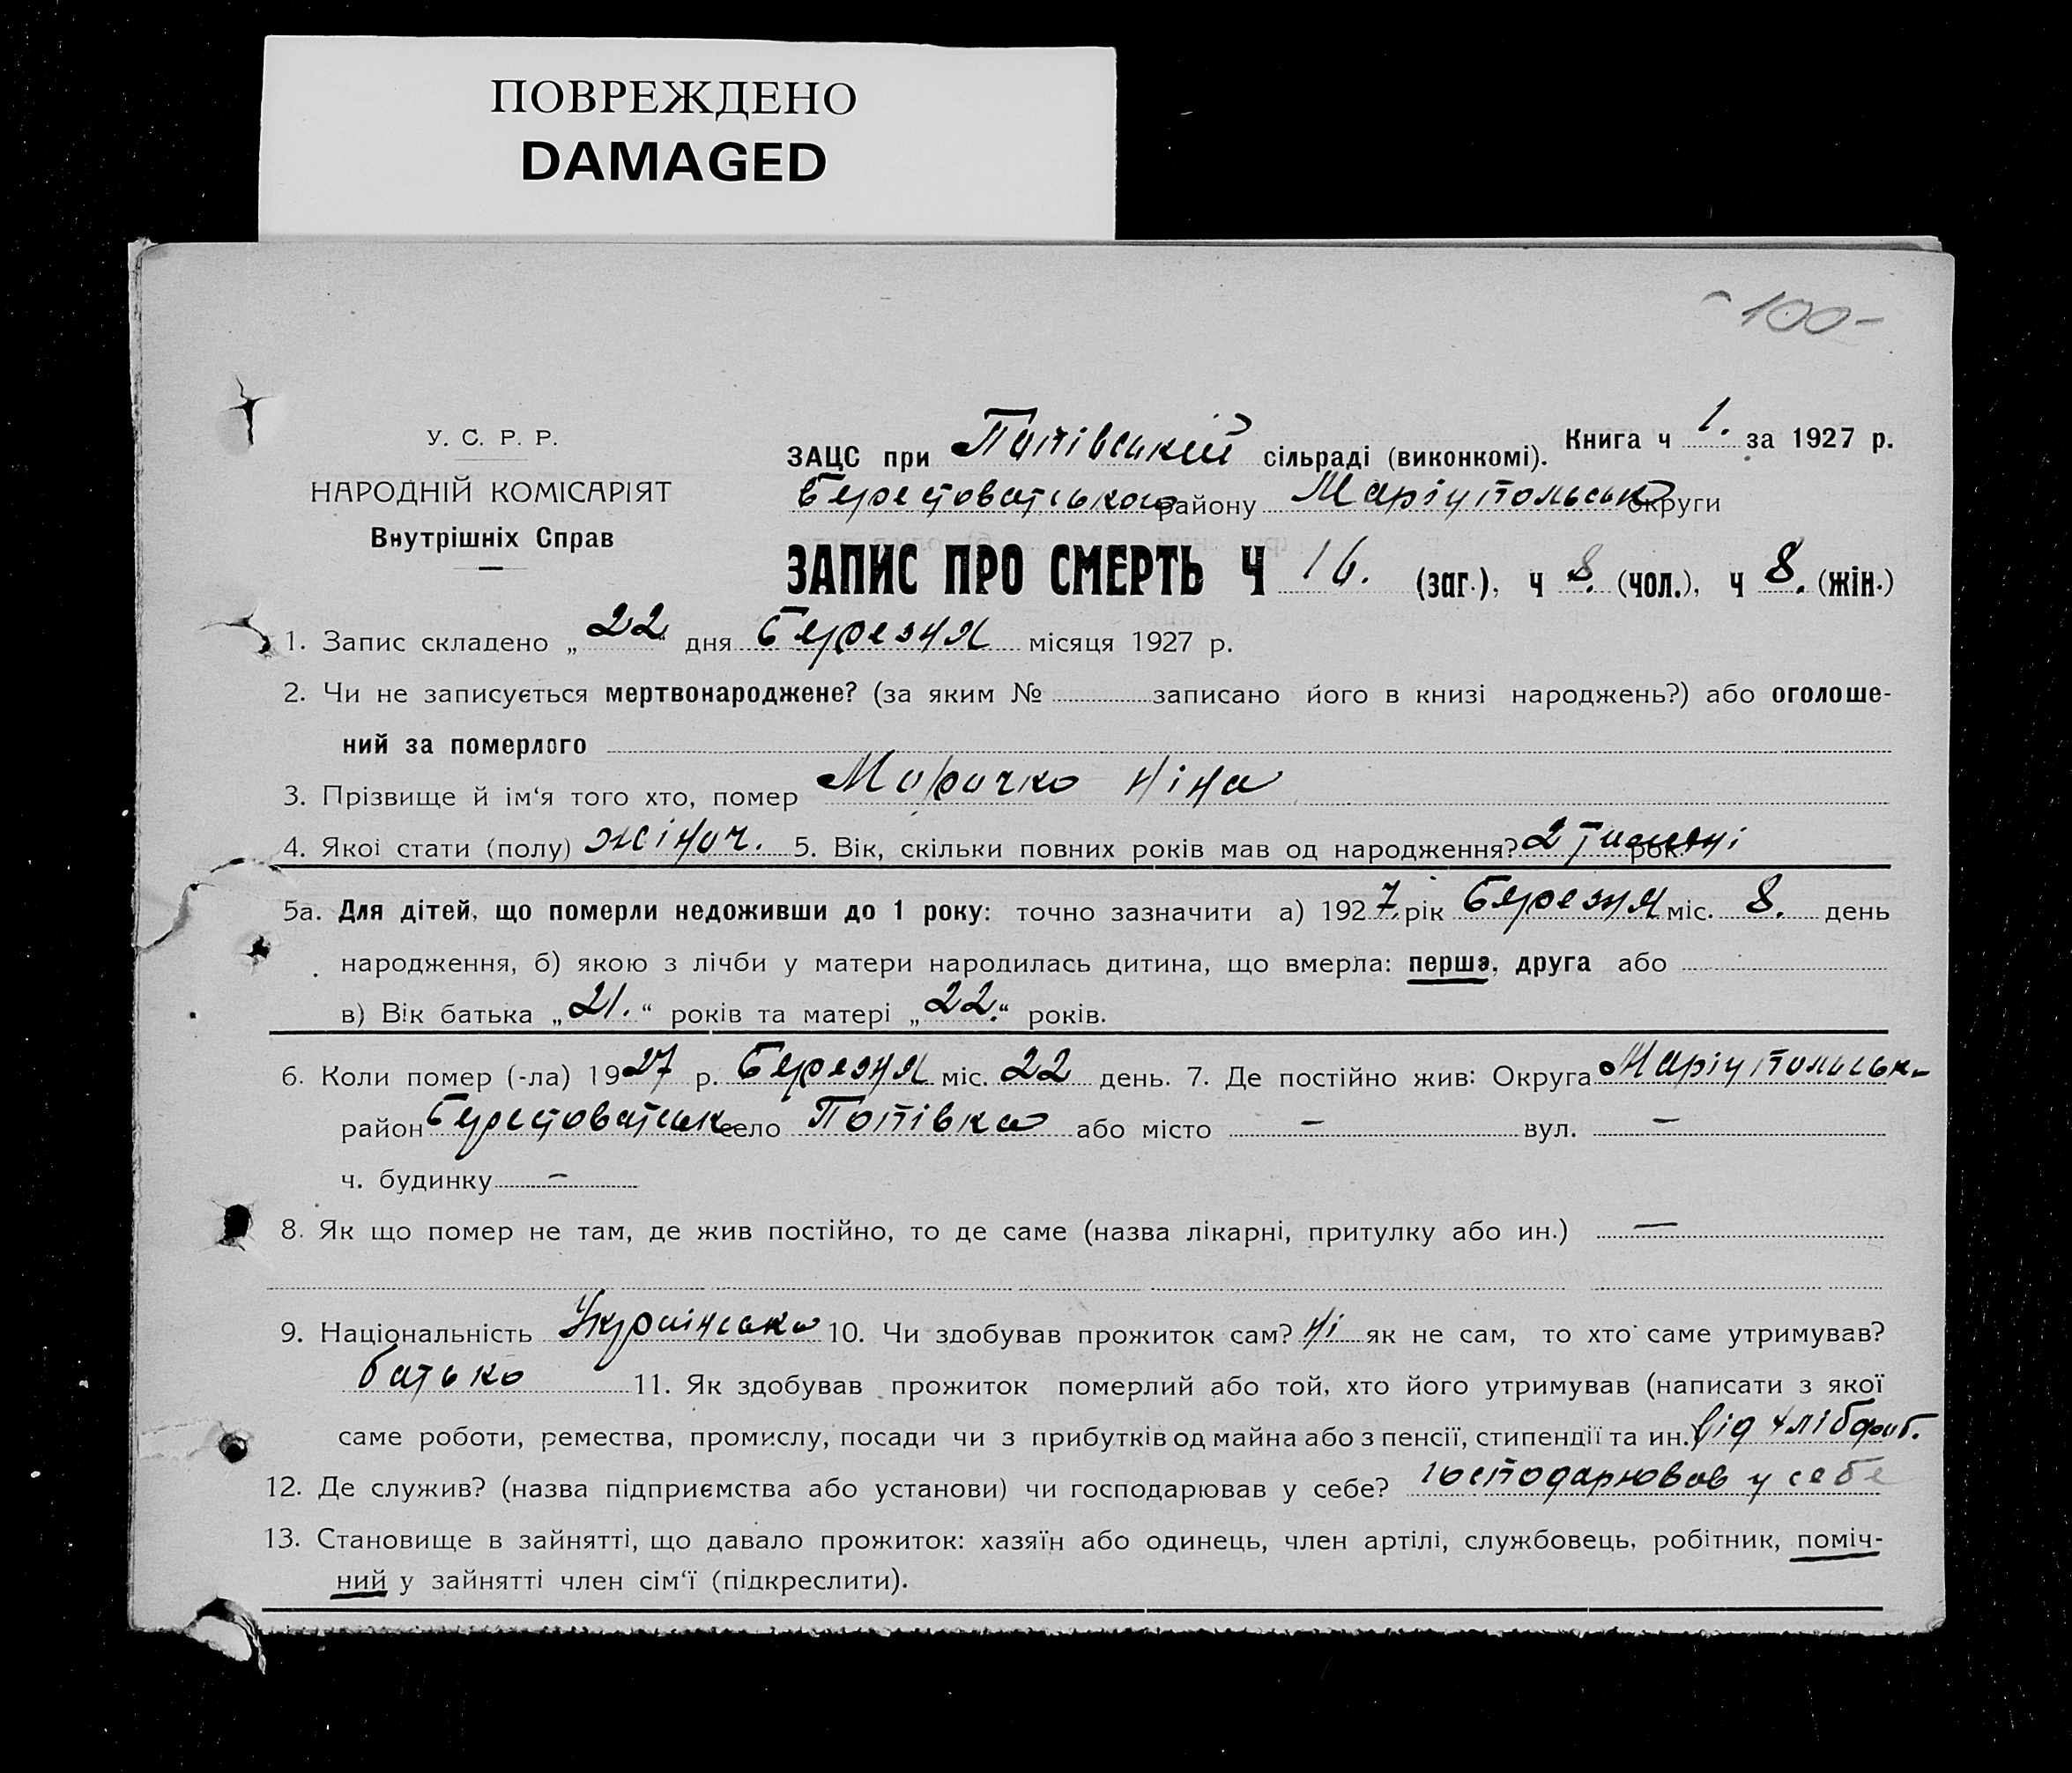 ПОВРЕЖДЕНО
DAMAGED
-100-
У. С. Р. Р.
НАРОДНІЙ КОМІСАРІЯТ
Внутрішніх Справ
Книга ч 1. за 1927 р.
ЗАЦС при Попівській сільраді (виконкомі).
Берестоватського району Маріупольськ округи
ЗАПИС ПРО СМЕРТЬ Ч 16. (заг.), ч 8. (чол.), ч 8. (жін.)
1. Запис складено „22" дня Березня місяця 1927 р.
2. Чи не записується мертвонароджене? (за яким № записано його в книзі народжень?) або оголоше-
ний за померлого
3. Прізвище й ім‘я того хто, помер Морочко Ніна
4. Якої стати (полу) жіноч. 5. Вік, скільки повних років мав од народження? 2 тижні рок.
5а. Для дітей, що померли недоживши до 1 року: точно зазначити а) 1927. рік Березня міс. 8. день
народження, б) якою з лічби у матери народилась дитина, що вмерла: перша, друга або
в) Вік батька „21.“ років та матері „22.“ років.
6. Коли помер (-ла) 1927 р. Березня міс. 22 день. 7. Де постійно жив: Округа Маріупольськ-
район Берестоватськ село Попівка або місто – вул. –
ч. будинку –
8. Як що помер не там, де жив постійно, то де саме (назва лікарні, притулку або ин.) —
9. Національність Українська 10. Чи здобував прожиток сам? Ні як не сам, то хто саме утримував?
батько 11. Як здобував прожиток померлий або той, хто його утримував (написати з якої
саме роботи, ремества, промислу, посади чи з прибутків од майна або з пенсії, стипендії та ин.) Від хлібороб.
12. Де служив? (назва підприємства або установи) чи господарював у себе? господарював у себе
13. Становище в зайнятті, що давало прожиток: хазяїн або одинець, член артілі, службовець, робітник, поміч-
ний у зайнятті член сім‘ї (підкреслити).